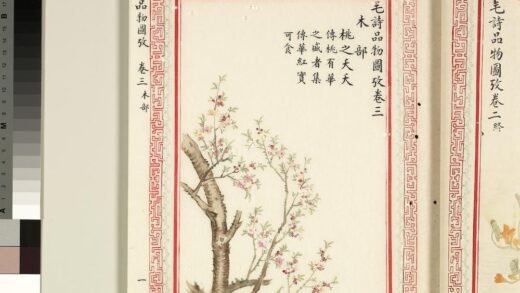 毛詩品物圖攷卷二終
毛詩品物圖攷卷三
木部
桃之夭夭
傳桃有華
之盛者集
傳華紅實
可食
品物圖攷 卷三 木部
一
M
A